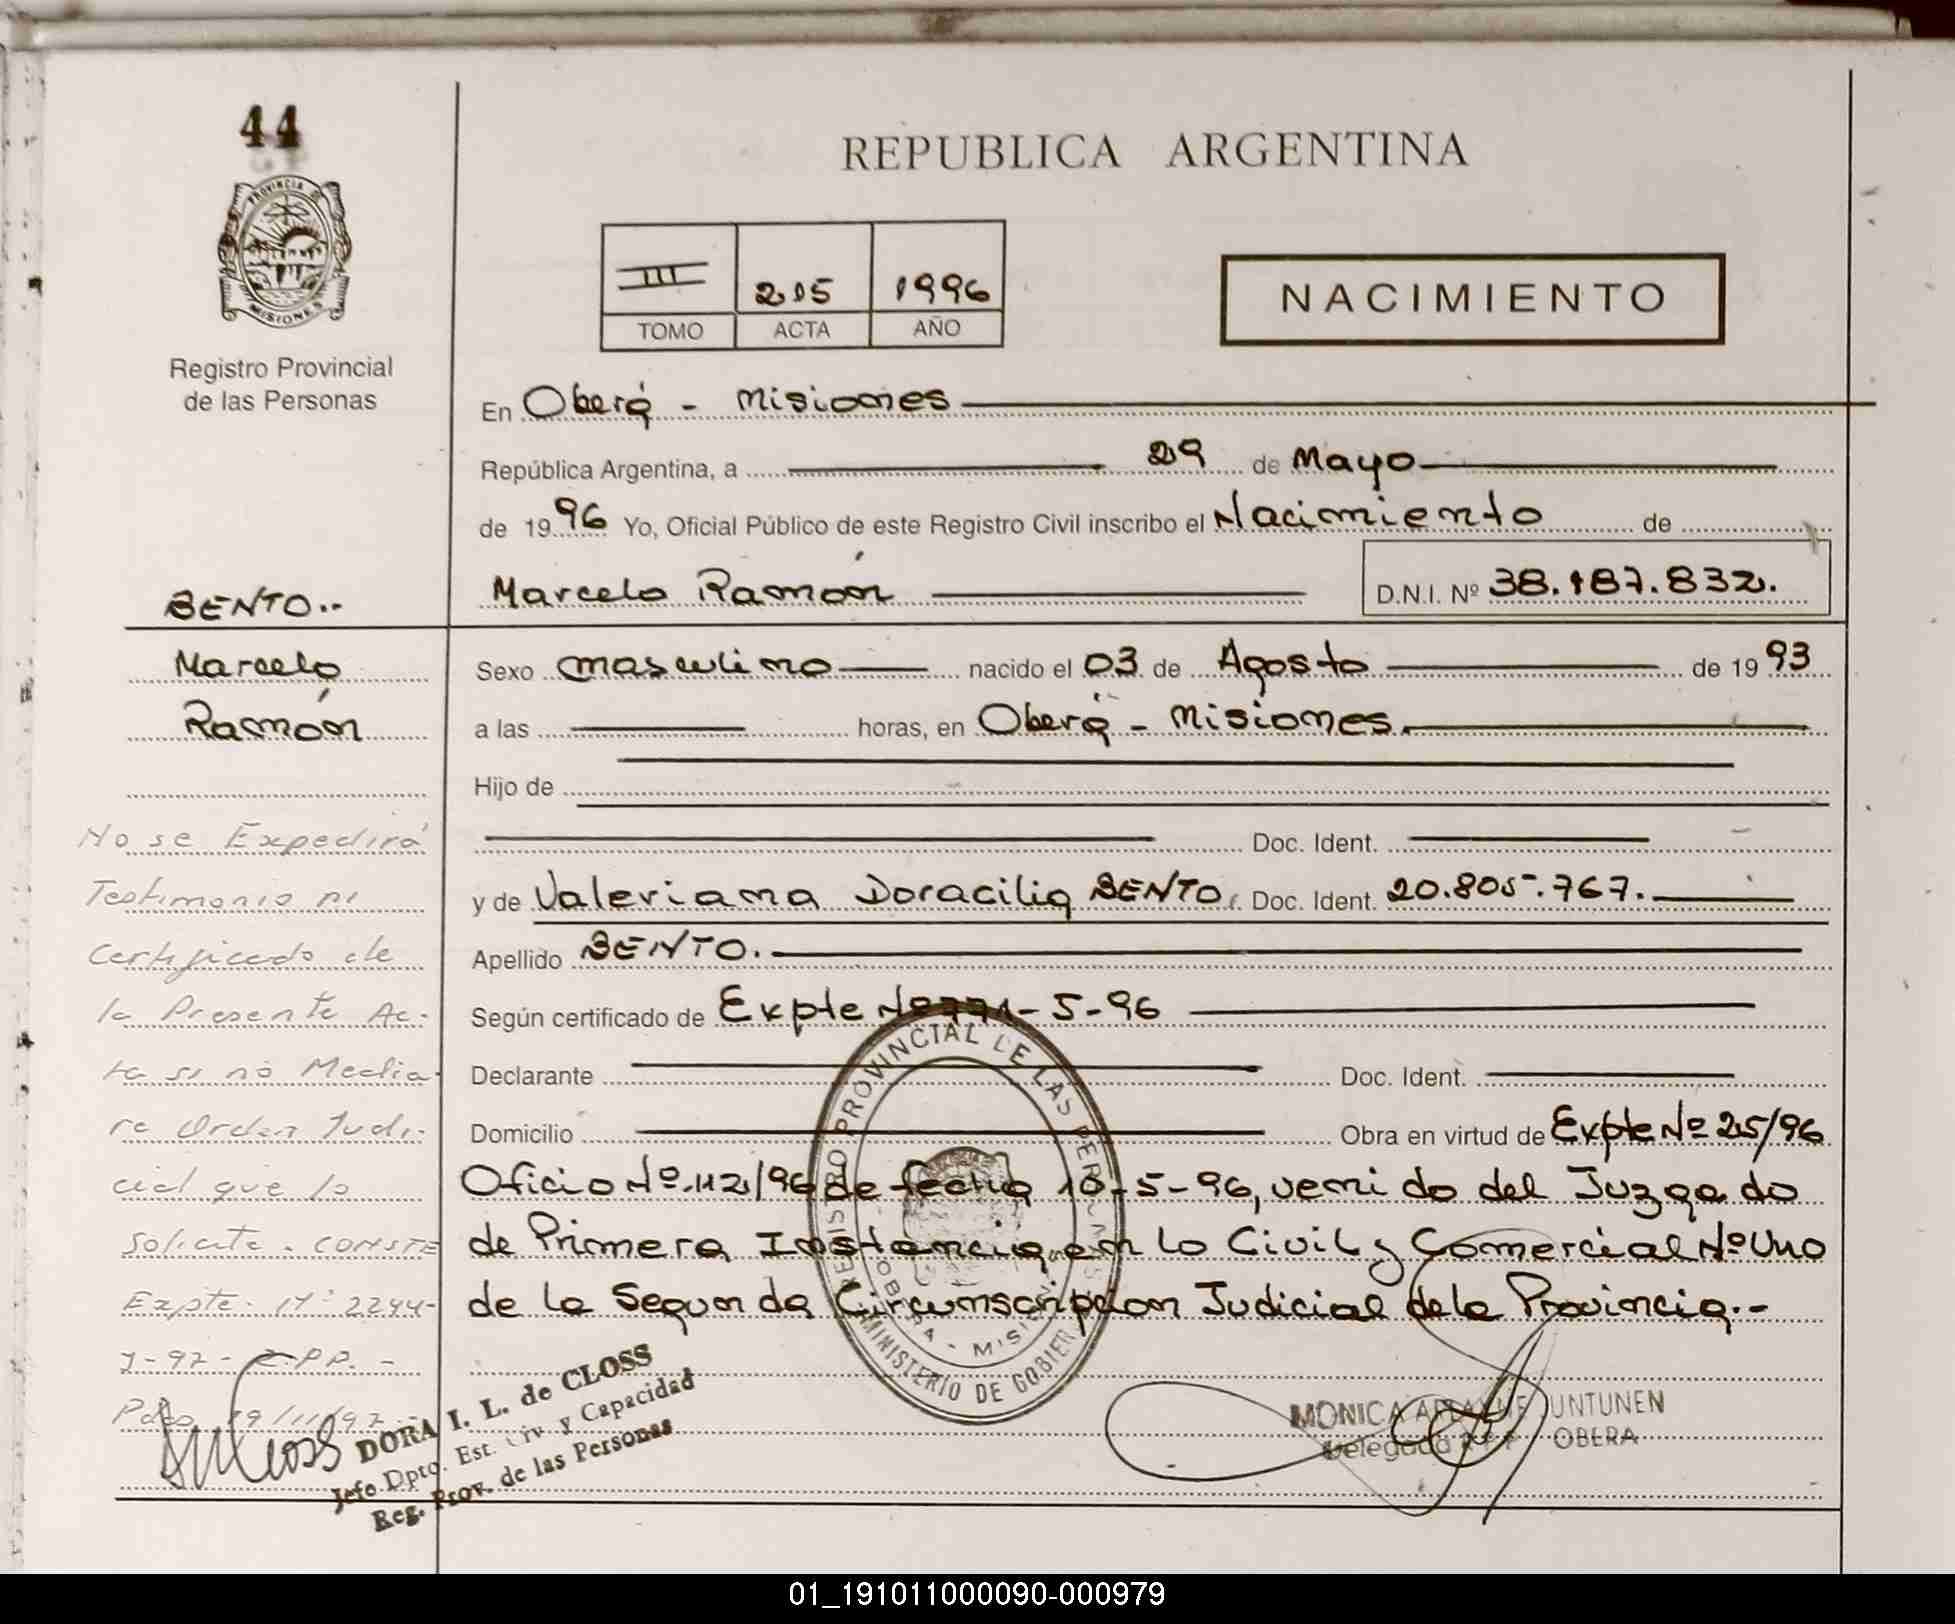 44
PROVINCIA DE
MISIONES
Registro Provincial
de las Personas
BENTO.-
Marcelo
Ramón
No se Expedirá
Testimonio ni
Certificado de
la Presente Ac-
ta si no Media-
re Orden Judi-
cial que lo
Solicite. CONSTE
Expte. Nº 2244-
J-97- R.P.P. -
Pdas, 19/11/97
DORA I. L. de CLOSS
Jefe Dpto. Est. Civ. y Capacidad
Reg. Prov. de las Personas
REPUBLICA ARGENTINA
III 215 1996
TOMO ACTA AÑO
NACIMIENTO
En Oberá - Misiones
República Argentina, a 29 de Mayo
de 1996 Yo, Oficial Público de este Registro Civil inscribo el Nacimiento de
Marcelo Ramón D.N.I. Nº 38.187.832.
Sexo masculino nacido el 03 de Agosto de 1993
a las horas, en Oberá - Misiones.
Hijo de
Doc. Ident.
y de Valeriana Doracilia BENTO. Doc. Ident. 20.805.767.
Apellido BENTO.
Según certificado de Expte Nº 771-5-96
Declarante Doc. Ident.
Domicilio Obra en virtud de Expte Nº 25/96
Oficio Nº 112/96 de fecha 10-5-96, venido del Juzgado
de Primera Instancia en lo Civil y Comercial Nº Uno
de la Segunda Circumscripcion Judicial de la Provincia.-
REGISTRO PROVINCIAL DE LAS PERSONAS
OBERA - MISIONES
MINISTERIO DE GOBIER
MONICA UNTUNEN
Delegada OBERA
01_191011000090-000979